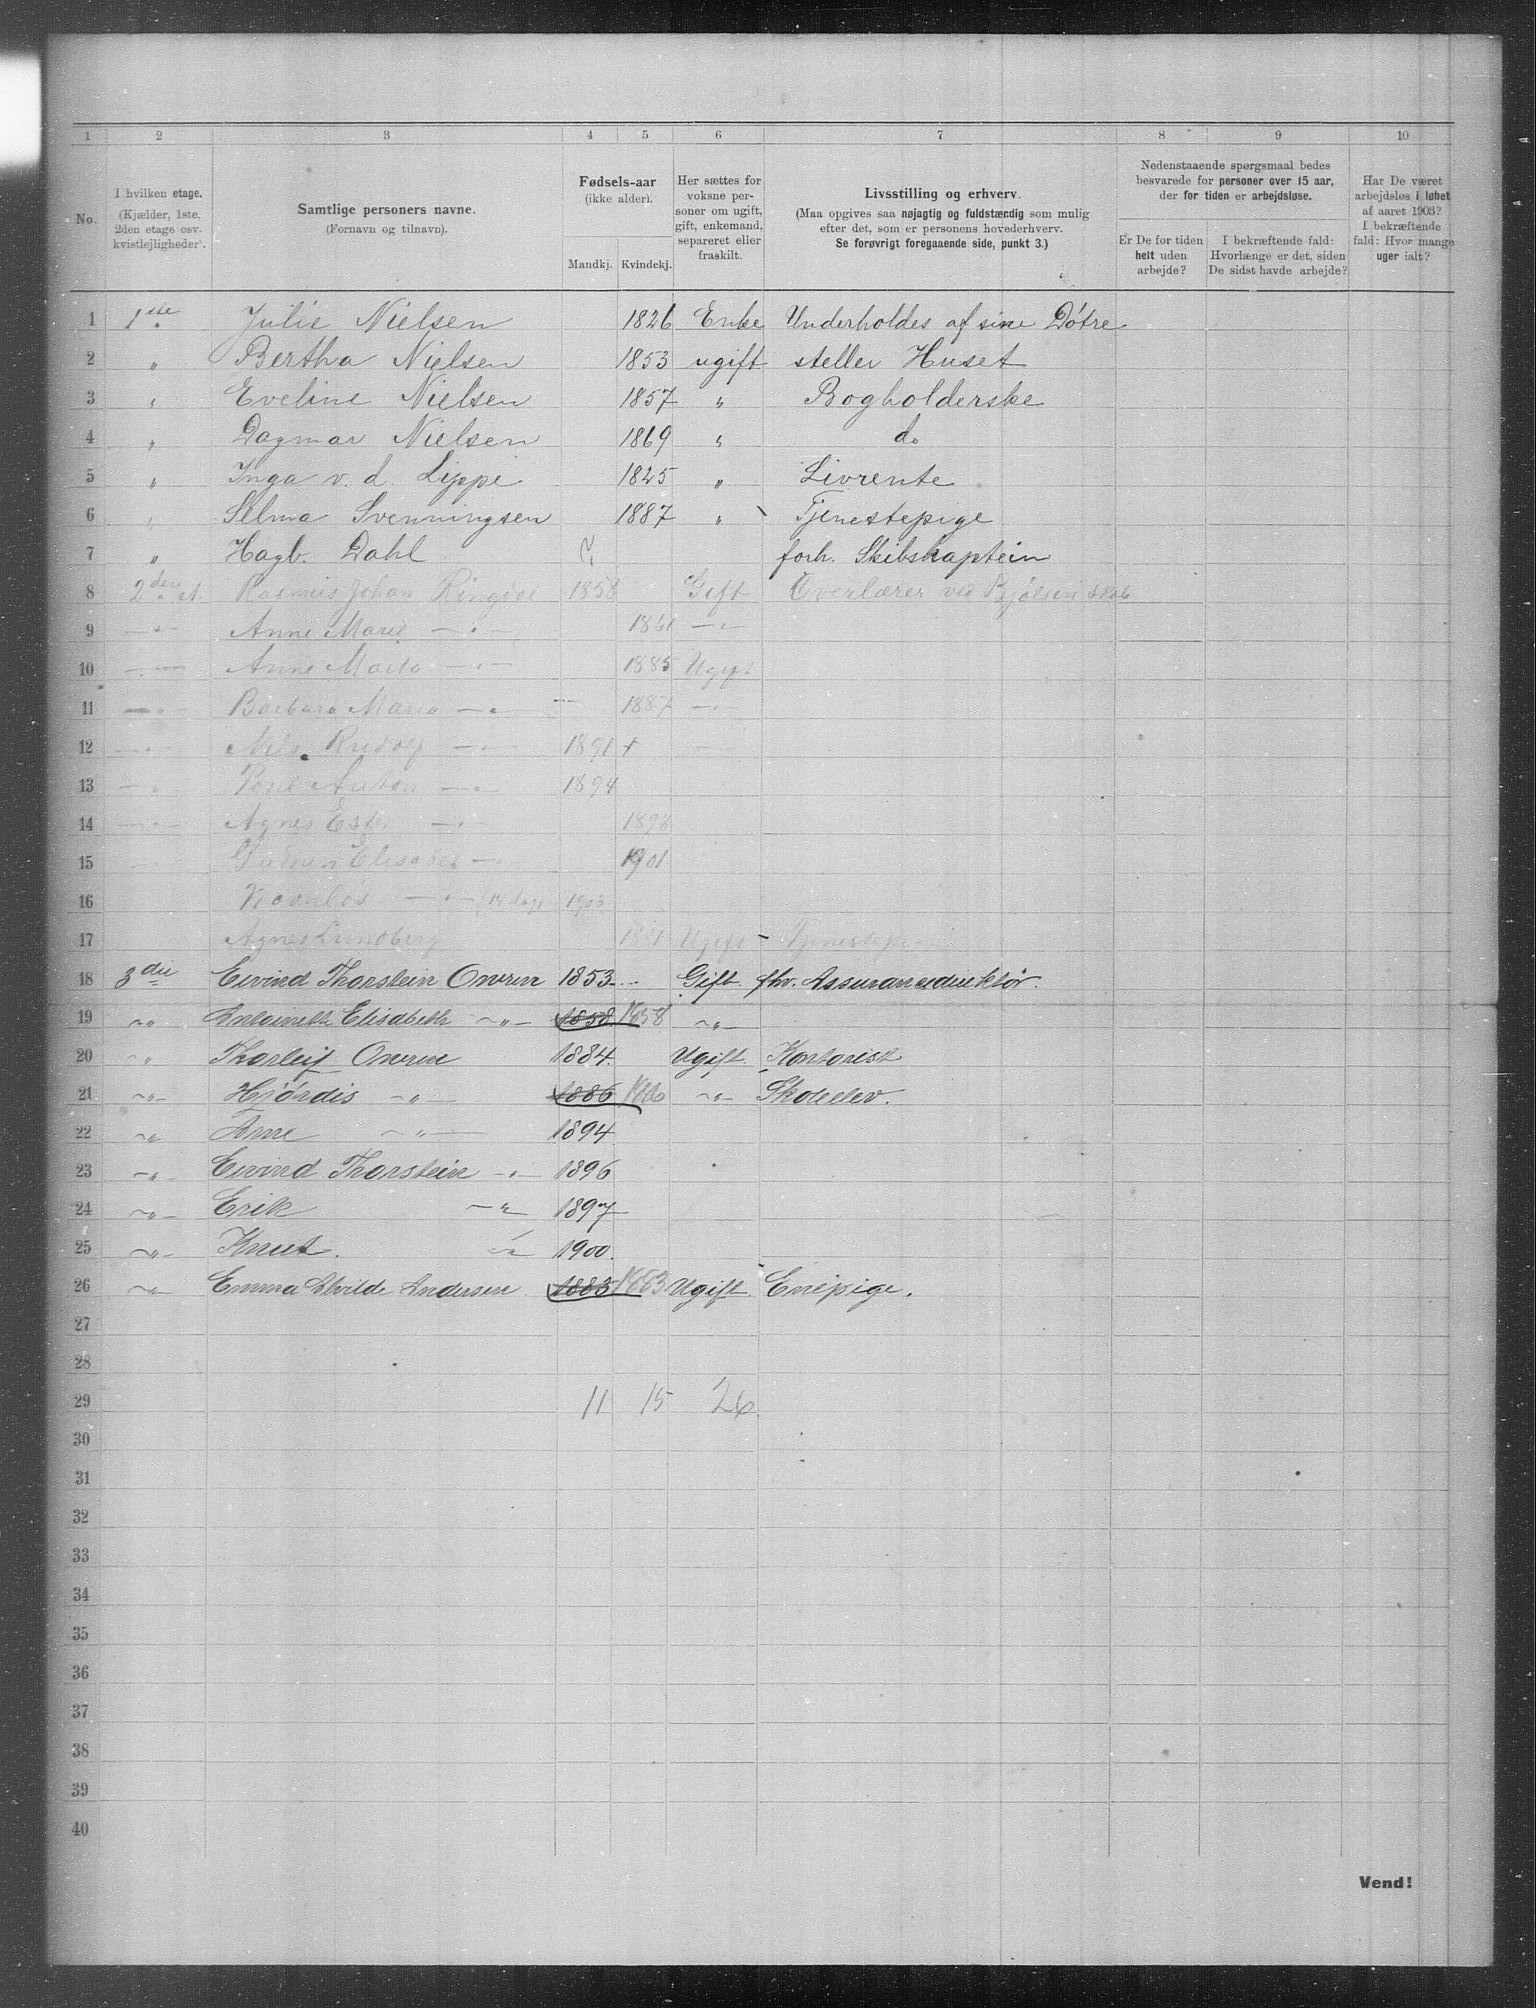 1 2 3 4 5 6 7 8 9 10
No.
I hvilken etage. (Kjælder, 1ste, 2den etage osv. kvistlejligheder).
Samtlige personers navne. (Fornavn og tilnavn).
Fødsels-aar (ikke alder). Mandkj. Kvindekj.
Her sættes for voksne personer om ugift, gift, enkemand, separeret eller fraskilt.
Livsstilling og erhverv. (Maa opgives saa nøjagtig og fuldstændig som mulig efter det, som er personens hovederhverv. Se forøvrigt foregaaende side, punkt 3.)
Nedenstaaende spørgsmaal bedes besvarede for personer over 15 aar, der for tiden er arbejdsløse.
Er De for tiden helt uden arbejde?
I bekræftende fald: Hvorlænge er det, siden De sidst havde arbejde?
Har De været arbejdsløs i løbet af aaret 1903? I bekræftende fald: Hvor mange uger ialt?
1 1ste Julie Nielsen 1826 Enke Underholdes af sine Døtre
2 " Bertha Nielsen 1853 ugift steller Huset
3 " Eveline Nielsen 1857 " Bogholderske
4 " Dagmar Nielsen 1869 " do
5 " Inga v. d. Lippe 1825 " Livrente
6 " Selma Svenningsen 1887 " Tjenestepige
7 " Hagb. Dahl ? forh. Skibskaptein
8 2den Rasmus Johan Ringdal 1858 Gift Overlærer ved Bjølsen skole
9 — " — Anne Marie — " — 1861 — " —
10 — " — Anne Marta — " — 1885 Ugift
11 — " — Barbara Maria — " — 1887 — " —
12 — " — Nils Rudolf — " — 1891 +
13 — " — Poul Anton — " — 1894
14 — " — Agnes — " —
15 Gudrun Elisabet — " — 1901
16 Navnløs — " — (14 dage 1903
17 Agnes Lundberg 1881 Ugift Tjenestepi
18 3die Eivind Thorstein Onsrud 1853 Gift fhv. Assurancedirektør.
19 — " — Antoinette Elisabeth — " — 1858 1858 — " —
20 — " — Thorleif 1884. Ugift Kontorist
21 — " — Hjørdis — " — 1886 1886 — " — Skoleelev.
22 — " — Arne — " — 1894
23 — " — Eivind Thorstein — " — 1896
24 — " — Erik — " — 1897
25 — " — Knut. — " — 1900.
26 — " — Emma Alvilde Andersen 1883 1883 Ugift Enepige.
27
28
29 11 15 26
30
31
32
33
34
35
36
37
38
39
40
Vend!